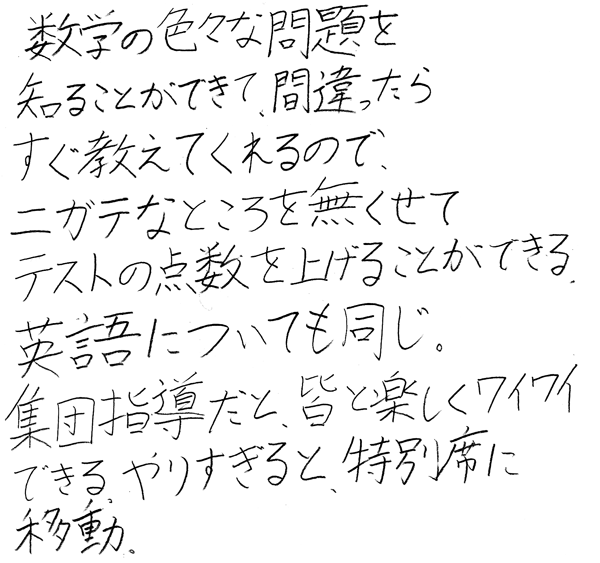 数学の色々な問題を
知ることができて、間違ったら
すぐ教えてくれるので、
ニガテなところを無くせて
テストの点数を上げることができる。
英語についても同じ。
集団指導だと、皆と楽しくワイワイ
できる。やりすぎると、特別席に
移動。